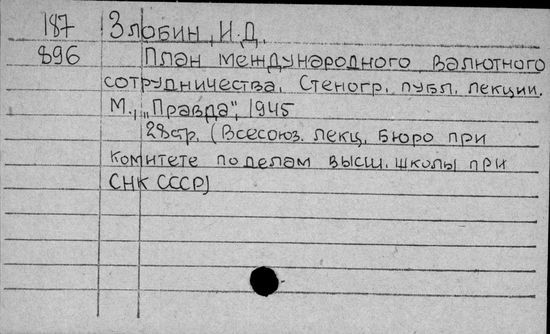 187 Злобин, И.Д.
896 План международного валютного
сотрудничества. Стеногр. публ. лекции.
М., „Правда", 1945
28стр. (Всесоюз. лекц. бюро при
Комитете по делам высш. школы при
СНК СССР)